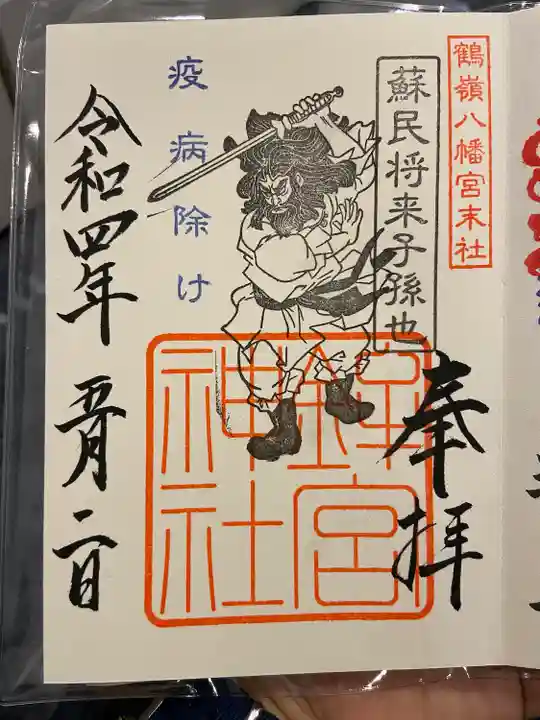 鶴嶺八幡宮末社
蘇民将来子孫也
奉拝
疫病除け
令和四年 五月 二日
神社